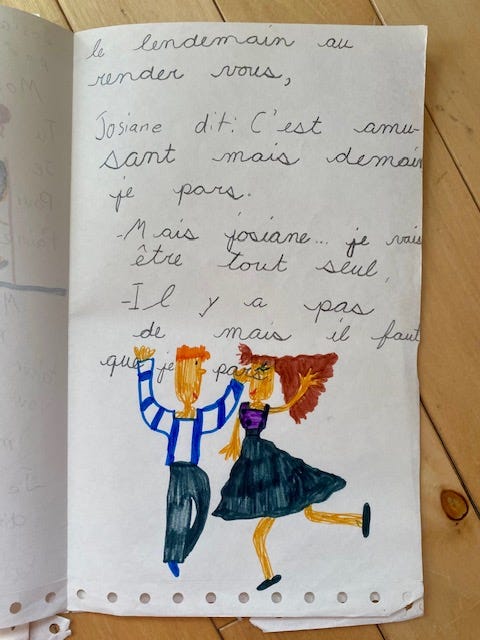 le lendemain au
render vous,
Josiane dit: C'est amu-
sant mais demain
je pars.
-Mais josiane... je vais
être tout seul,
-Il y a pas
de mais il faut
que je pars